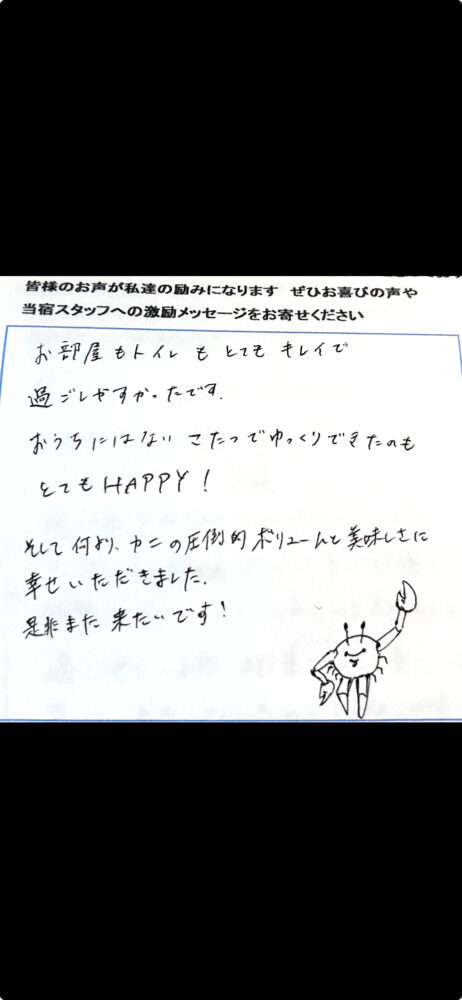 皆様のお声が私達の励みになります ぜひお喜びの声や
当宿スタッフへの激励メッセージをお寄せください
お部屋もトイレもとてもキレイで
過ごしやすかったです.
おうちにはないこたつでゆっくりできたのも
とてもHAPPY!
そして何より、カニの圧倒的ボリュームと美味しさに
幸せいただきました.
是非また来たいです!